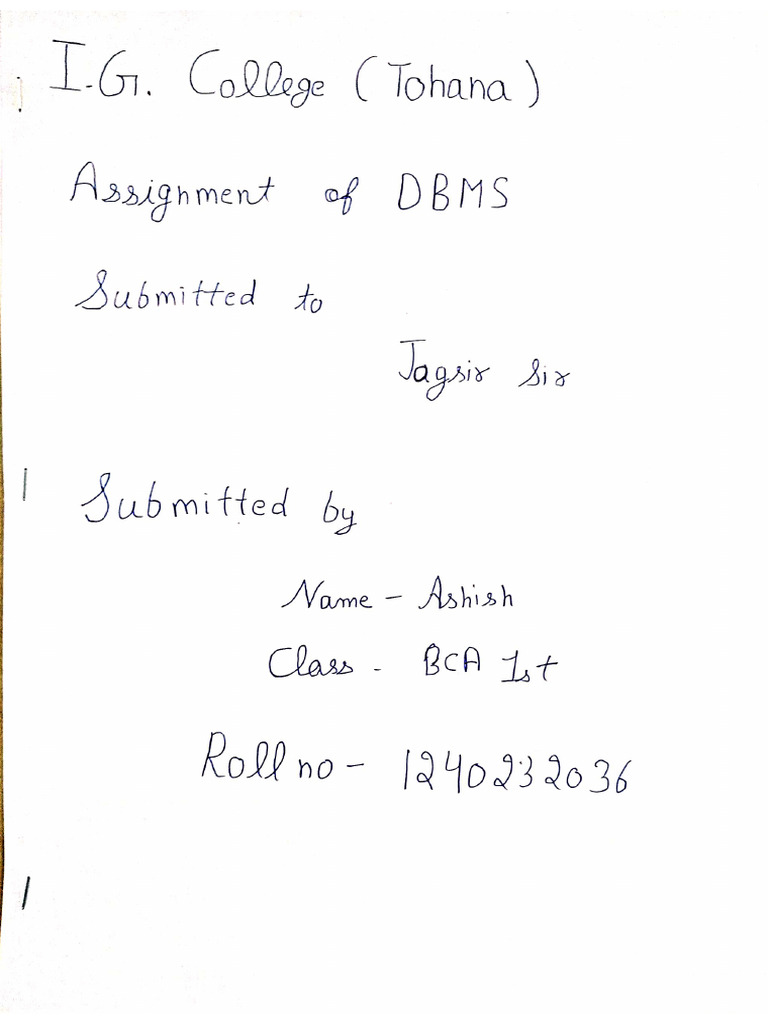 I.G. College (Tohana)
Assignment of DBMS
Submitted to
Jagsir Sir
Submitted by
Name - Ashish
Class - BCA 1st
Roll no - 1240232036